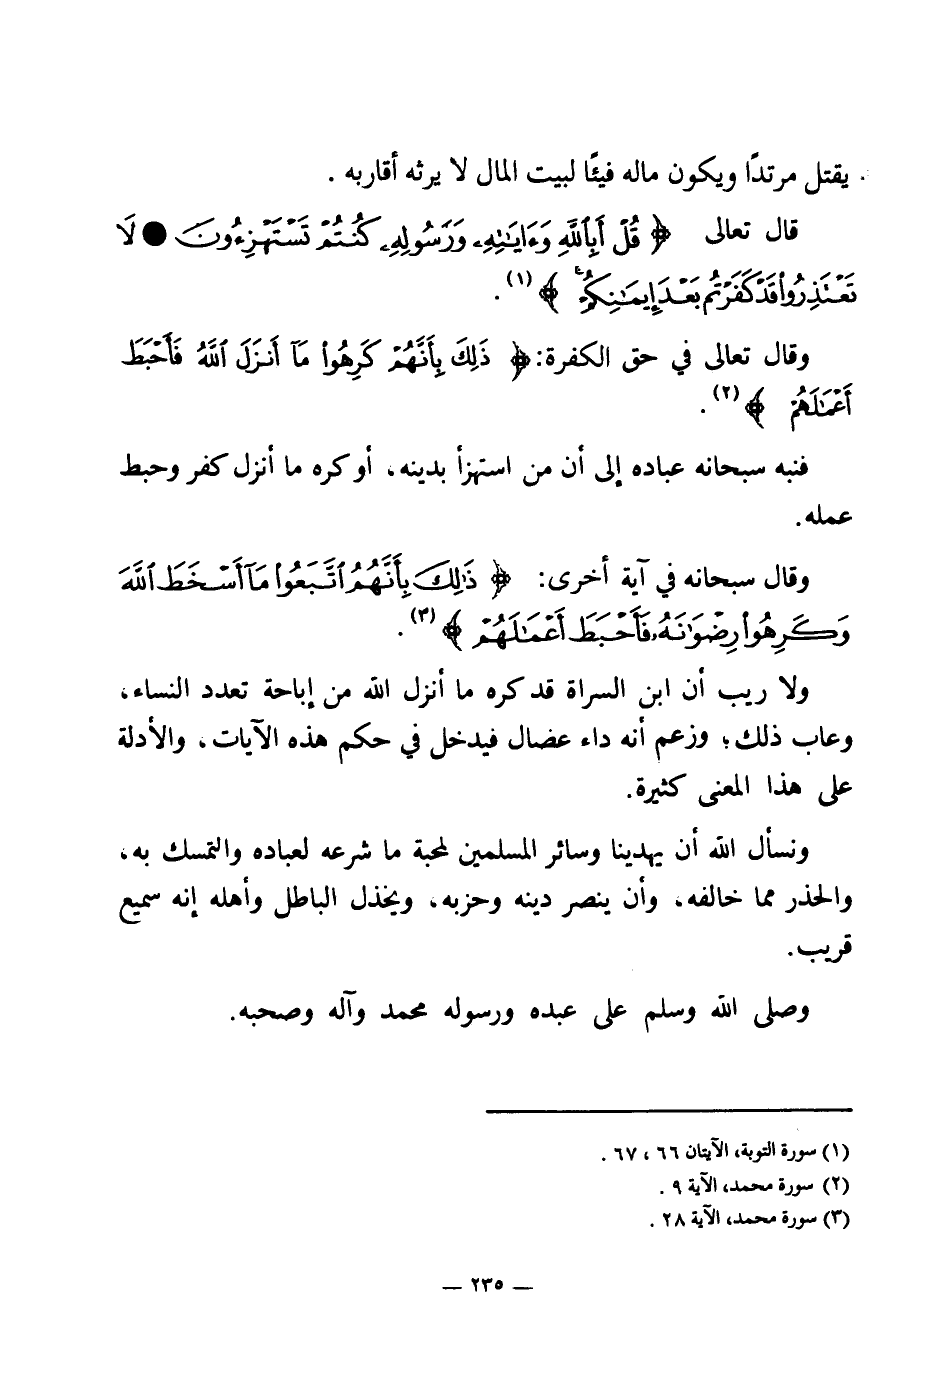 يقتل مرتدًا ويكون ماله فيئًا لبيت المال لا يرثه أقاربه .
قال تعالى ﴿ قُلْ أَبِٱللَّهِ وَءَايَـٰتِهِۦ وَرَسُولِهِۦ كُنتُمْ تَسْتَهْزِءُونَ ● لَا
تَعْتَذِرُوا۟ قَدْ كَفَرْتُم بَعْدَ إِيمَـٰنِكُمْ ۚ ﴾ (١) .
وقال تعالى في حق الكفرة: ﴿ ذَٰلِكَ بِأَنَّهُمْ كَرِهُوا۟ مَآ أَنزَلَ ٱللَّهُ فَأَحْبَطَ
أَعْمَـٰلَهُمْ ﴾ (٢) .
فنبه سبحانه عباده إلى أن من استهزأ بدينه، أو كره ما أنزل كفر وحبط
عمله.
وقال سبحانه في آية أخرى: ﴿ ذَٰلِكَ بِأَنَّهُمُ ٱتَّبَعُوا۟ مَآ أَسْخَطَ ٱللَّهَ
وَكَرِهُوا۟ رِضْوَٰنَهُۥ فَأَحْبَطَ أَعْمَـٰلَهُمْ ﴾ (٣) .
ولا ريب أن ابن السراة قد كره ما أنزل الله من إباحة تعدد النساء،
وعاب ذلك؛ وزعم أنه داء عضال فيدخل في حكم هذه الآيات، والأدلة
على هذا المعنى كثيرة.
ونسأل الله أن يهدينا وسائر المسلمين لمحبة ما شرعه لعباده والتمسك به،
والحذر مما خالفه، وأن ينصر دينه وحزبه، ويخذل الباطل وأهله إنه سميع
قريب.
وصلى الله وسلم على عبده ورسوله محمد وآله وصحبه.
(١) سورة التوبة، الآيتان ٦٦ ، ٦٧ .
(٢) سورة محمد، الآية ٩ .
(٣) سورة محمد، الآية ٢٨ .
— ٢٣٥ —